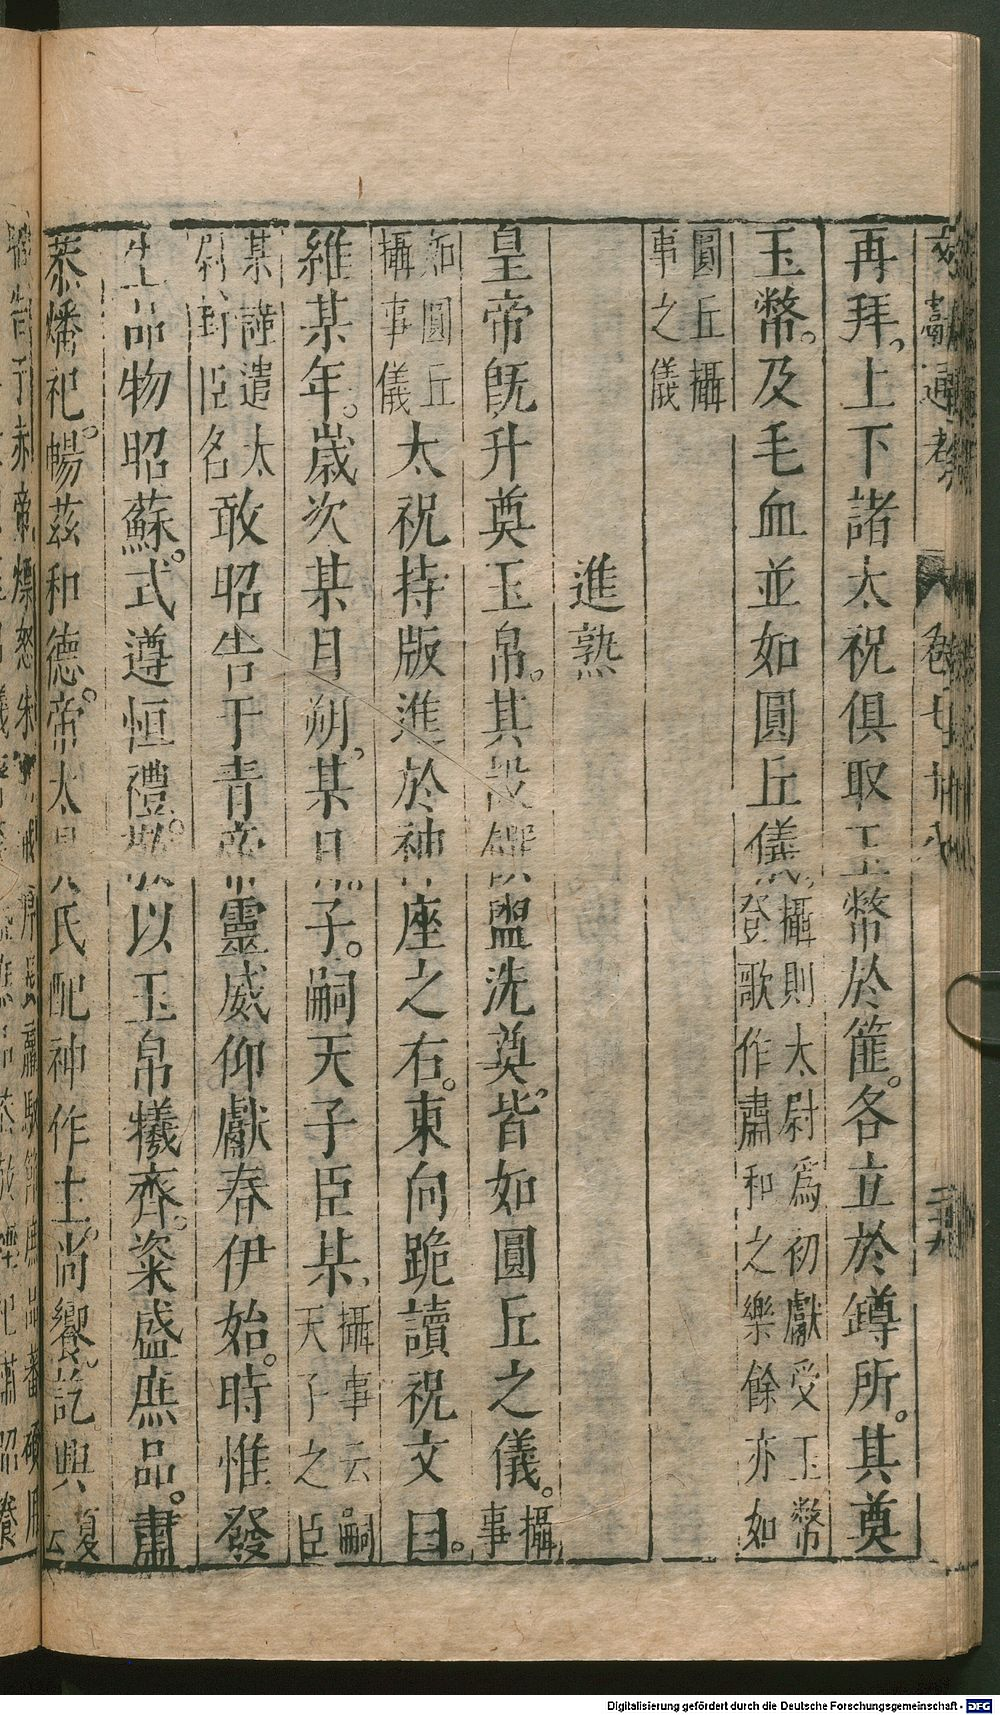 再拜上下諸太祝俱取玉幣於篚。各立於罇所。其奠
玉幣。及毛血並如圓丘儀攝則太尉爲初獻受玉幣
登歌作肅和之樂餘亦如
圓丘攝
事之儀
進熟
皇帝旣升奠玉帛。其設饌盥洗奠。皆如圓丘之儀。攝
事
如圓丘
攝事儀太祝持版進於神座之右。東向跪讀祝文曰。
維某年。歲次某月朔,某日子。嗣天子臣某,攝事云嗣
天子之臣
某謹遣太
尉封臣名敢昭告于青帝靈威仰獻春伊始。時惟發
生品物昭蘇。式遵恒禮。以玉帛犧齊。粢盛庶品。肅
恭燔祀。暢茲和德。帝太氏配神作主。尚饗。訖興夏
云
文獻通考
卷七十八
Digitalisierung gefördert durch die Deutsche Forschungsgemeinschaft - DFG